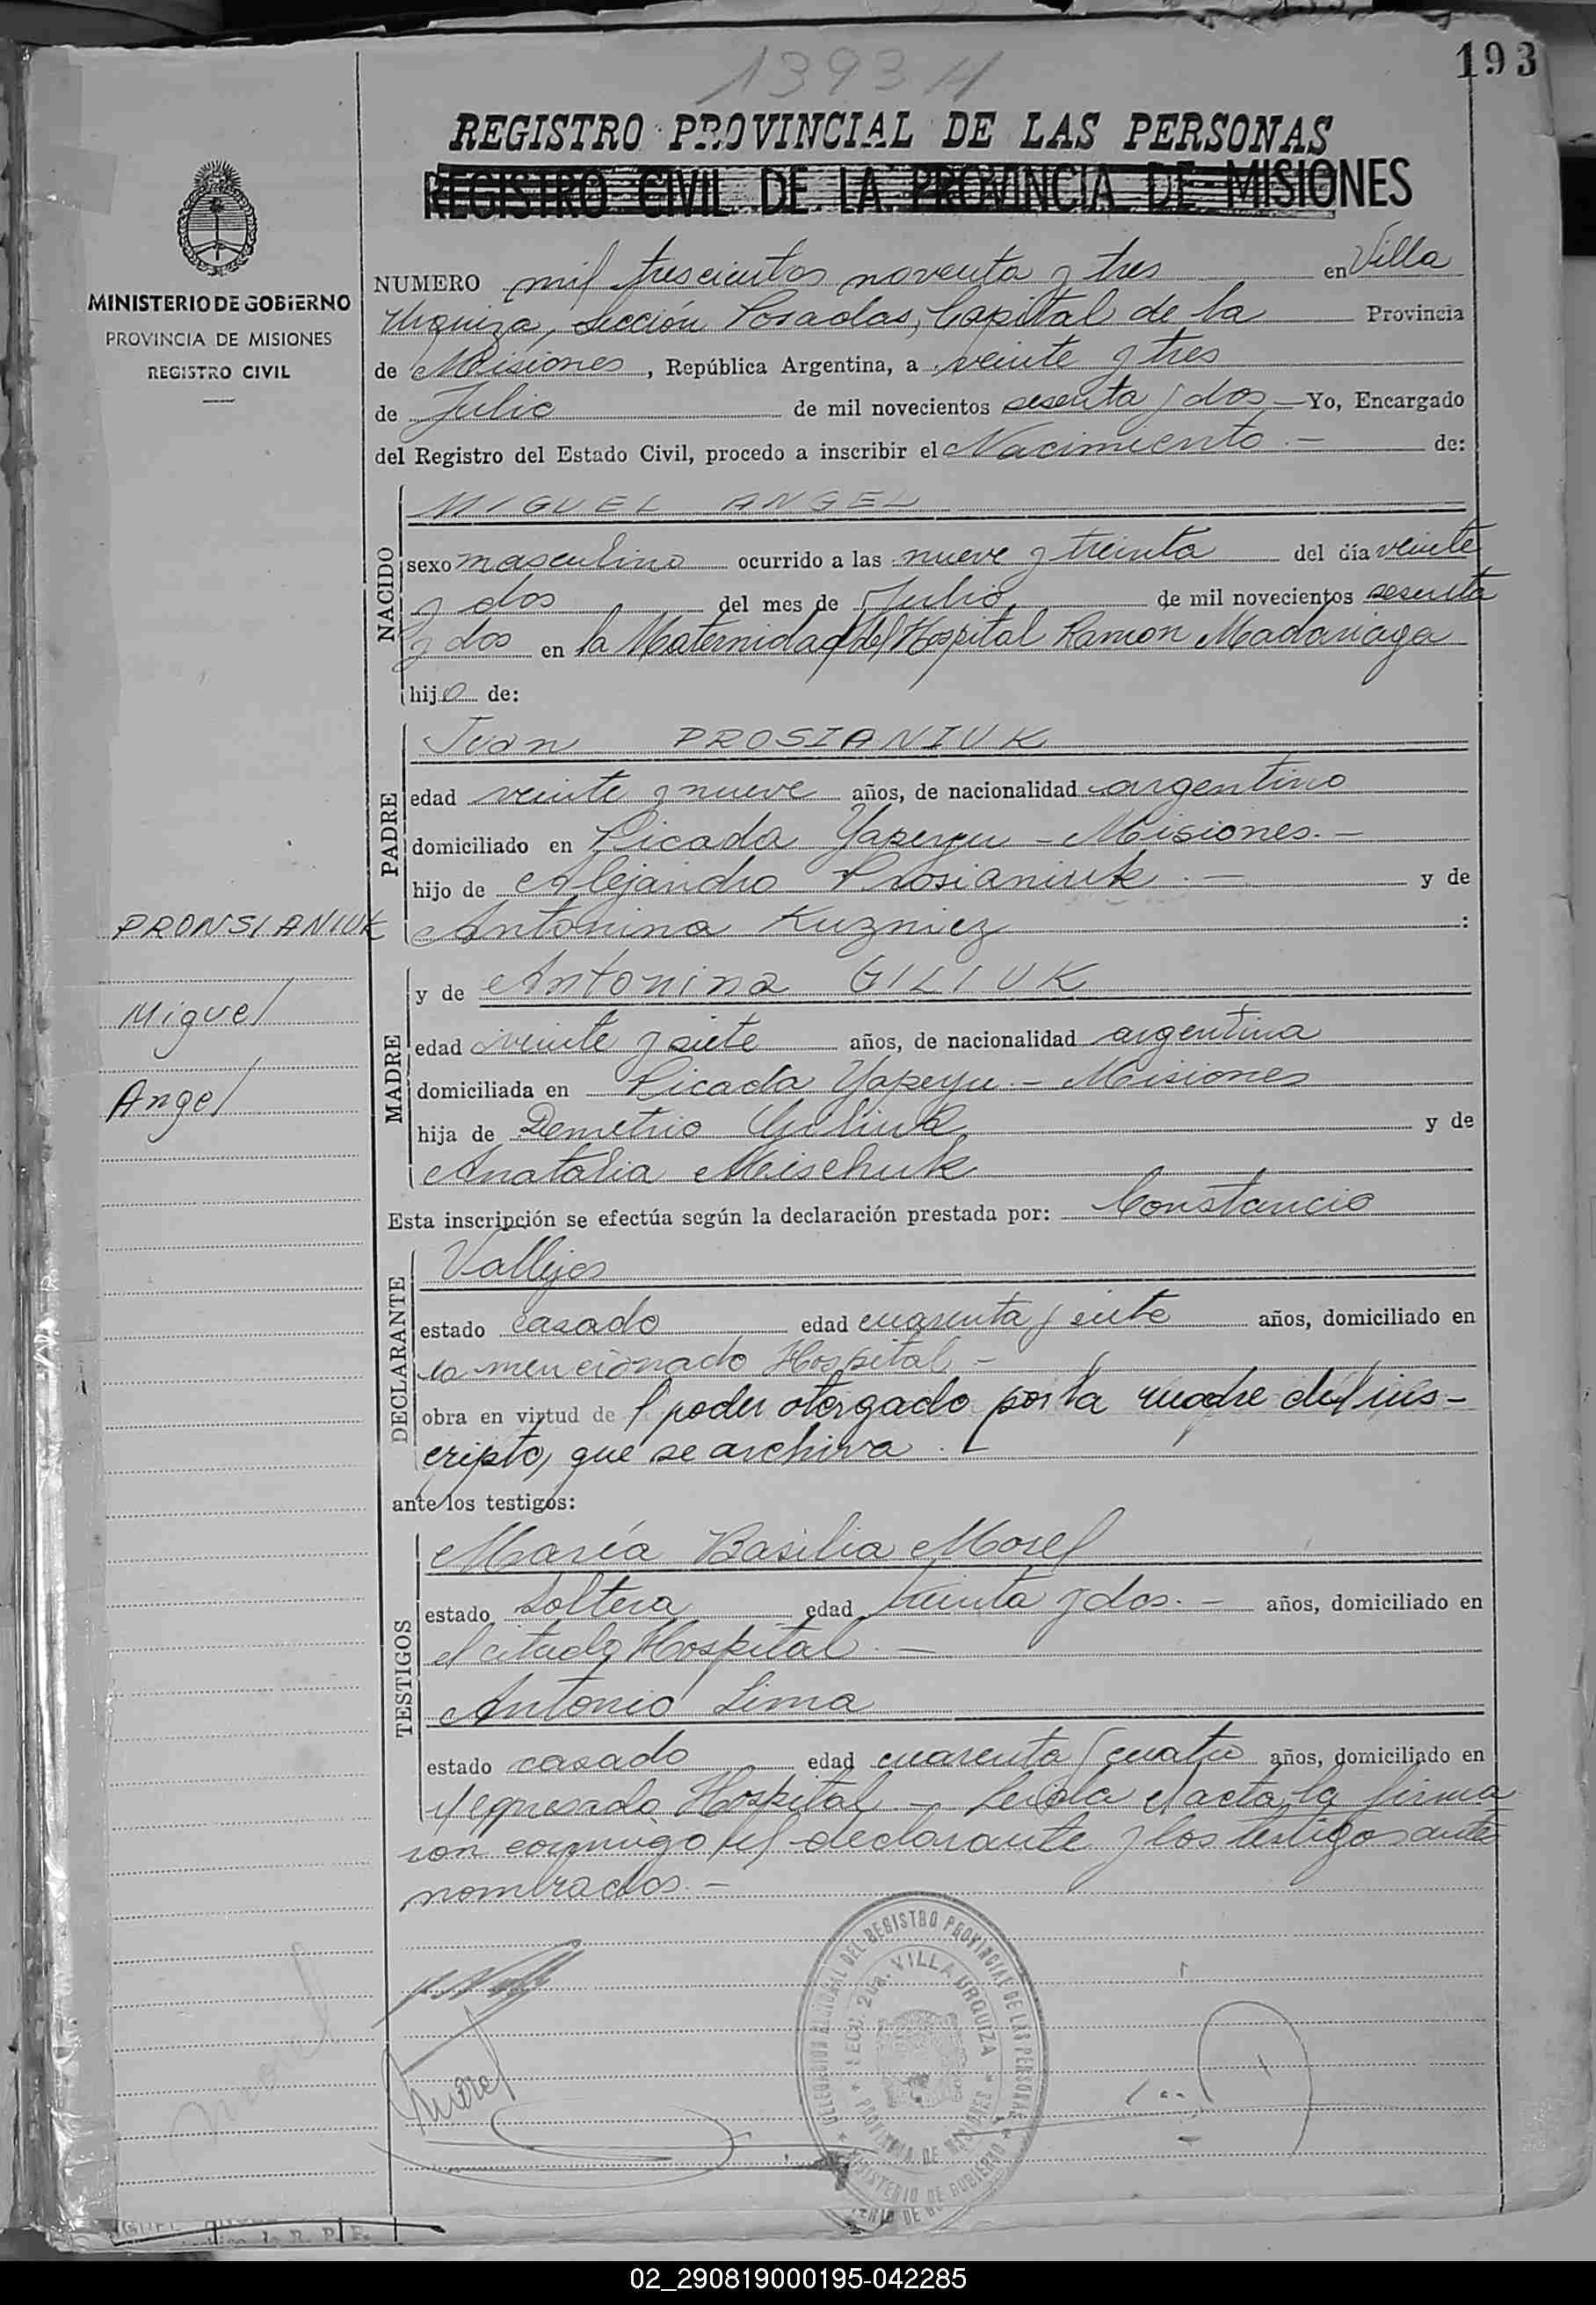 193
1393 H
REGISTRO PROVINCIAL DE LAS PERSONAS
REGISTRO CIVIL DE LA PROVINCIA DE MISIONES
MINISTERIO DE GOBIERNO
PROVINCIA DE MISIONES
REGISTRO CIVIL
NUMERO mil trescientos noventa y tres en Villa
Urquiza, Sección Posadas, Capital de la Provincia
de Misiones, República Argentina, a veinte y tres
de Julio de mil novecientos sesenta y dos — Yo, Encargado
del Registro del Estado Civil, procedo a inscribir el Nacimiento.— de:
NACIDO
MIGUEL ANGEL
sexo masculino ocurrido a las nueve y treinta del día veinte
y dos del mes de Julio de mil novecientos sesenta
y dos en la Maternidad del Hospital Ramon Madariaga
hijo de:
PADRE
Juan PROSIANIUK
edad veinte y nueve años, de nacionalidad argentino
domiciliado en Picada Yapeyu - Misiones.—
hijo de Alejandro Prosianiuk.— y de
Antonina Kuzniez :
PRONSIANIUK
Miguel
Angel
MADRE
y de Antonina GILIUK
edad veinte y siete años, de nacionalidad argentina
domiciliada en Picada Yapeyu - Misiones
hija de Demetrio Giliuk y de
Anatalia Mischuk
Esta inscripción se efectúa según la declaración prestada por: Constancio
DECLARANTE
Vallejos
estado casado edad cuarenta y siete años, domiciliado en
mencionado Hospital.—
obra en virtud de l poder otorgado por la madre del ins-
cripto, que se archiva.—
ante los testigos:
TESTIGOS
María Basilia Morel
estado soltera edad treinta y dos.— años, domiciliado en
el citado Hospital.—
Antonio Lima
estado casado edad cuarenta y cuatro años, domiciliado en
el expresado Hospital.— Leida el acta, la firma
ron conmigo el declarante y los testigos antes
nombrados.—
DELEGACION REGIONAL DEL REGISTRO PROVINCIAL DE LAS PERSONAS
SECC. 2da. VILLA URQUIZA
PROVINCIA DE MISIONES
MINISTERIO DE GOBIERNO
Morel
02_290819000195-042285